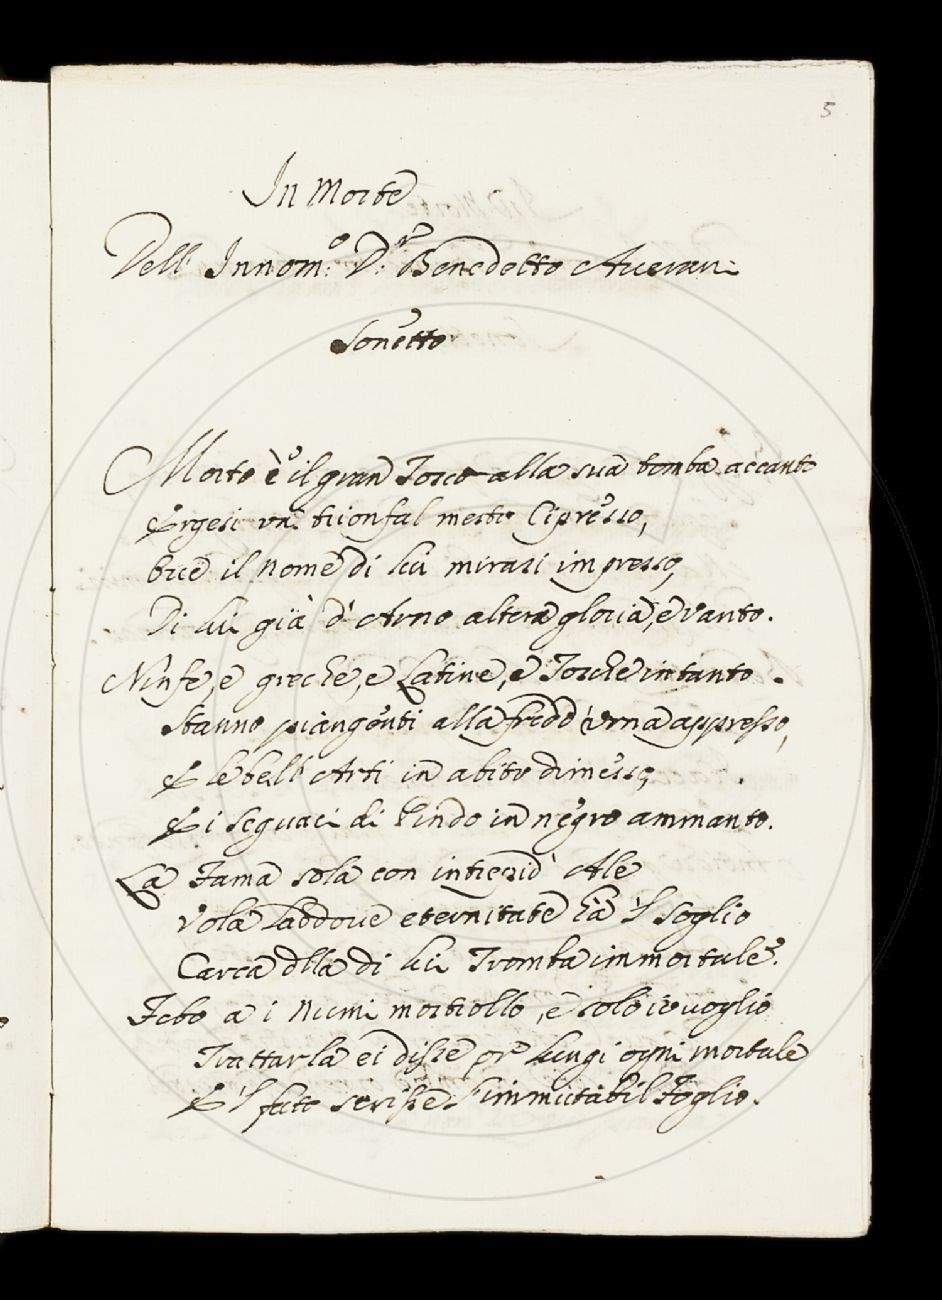 5
In Morte
Dell' Innom.o D.r Benedetto Averani
Sonetto
Morto è il gran Tosco alla sua tomba accanto
Ergesi un trionfal mesto Cipresso,
Ove il Nome di lui mirasi impresso,
Di lui già d'Arno altera gloria, e vanto.
Ninfe, e greche, e Latine, e Tosche intanto
Stanno piangenti alla fredd'urna appresso,
E le bell'Arti in abito dimesso,
E i seguaci di Pindo in negro ammanto.
La Fama sola con intrepid' Ale
Vola laddove eternitate hà 'l Soglio
Carca di lui Tromba immortale.
Febo a i Numi mostrollo, e solo io voglio
Trattarla ei disse per lungi ogni mortale
E 'l fato scrisse l'immutabil Foglio.